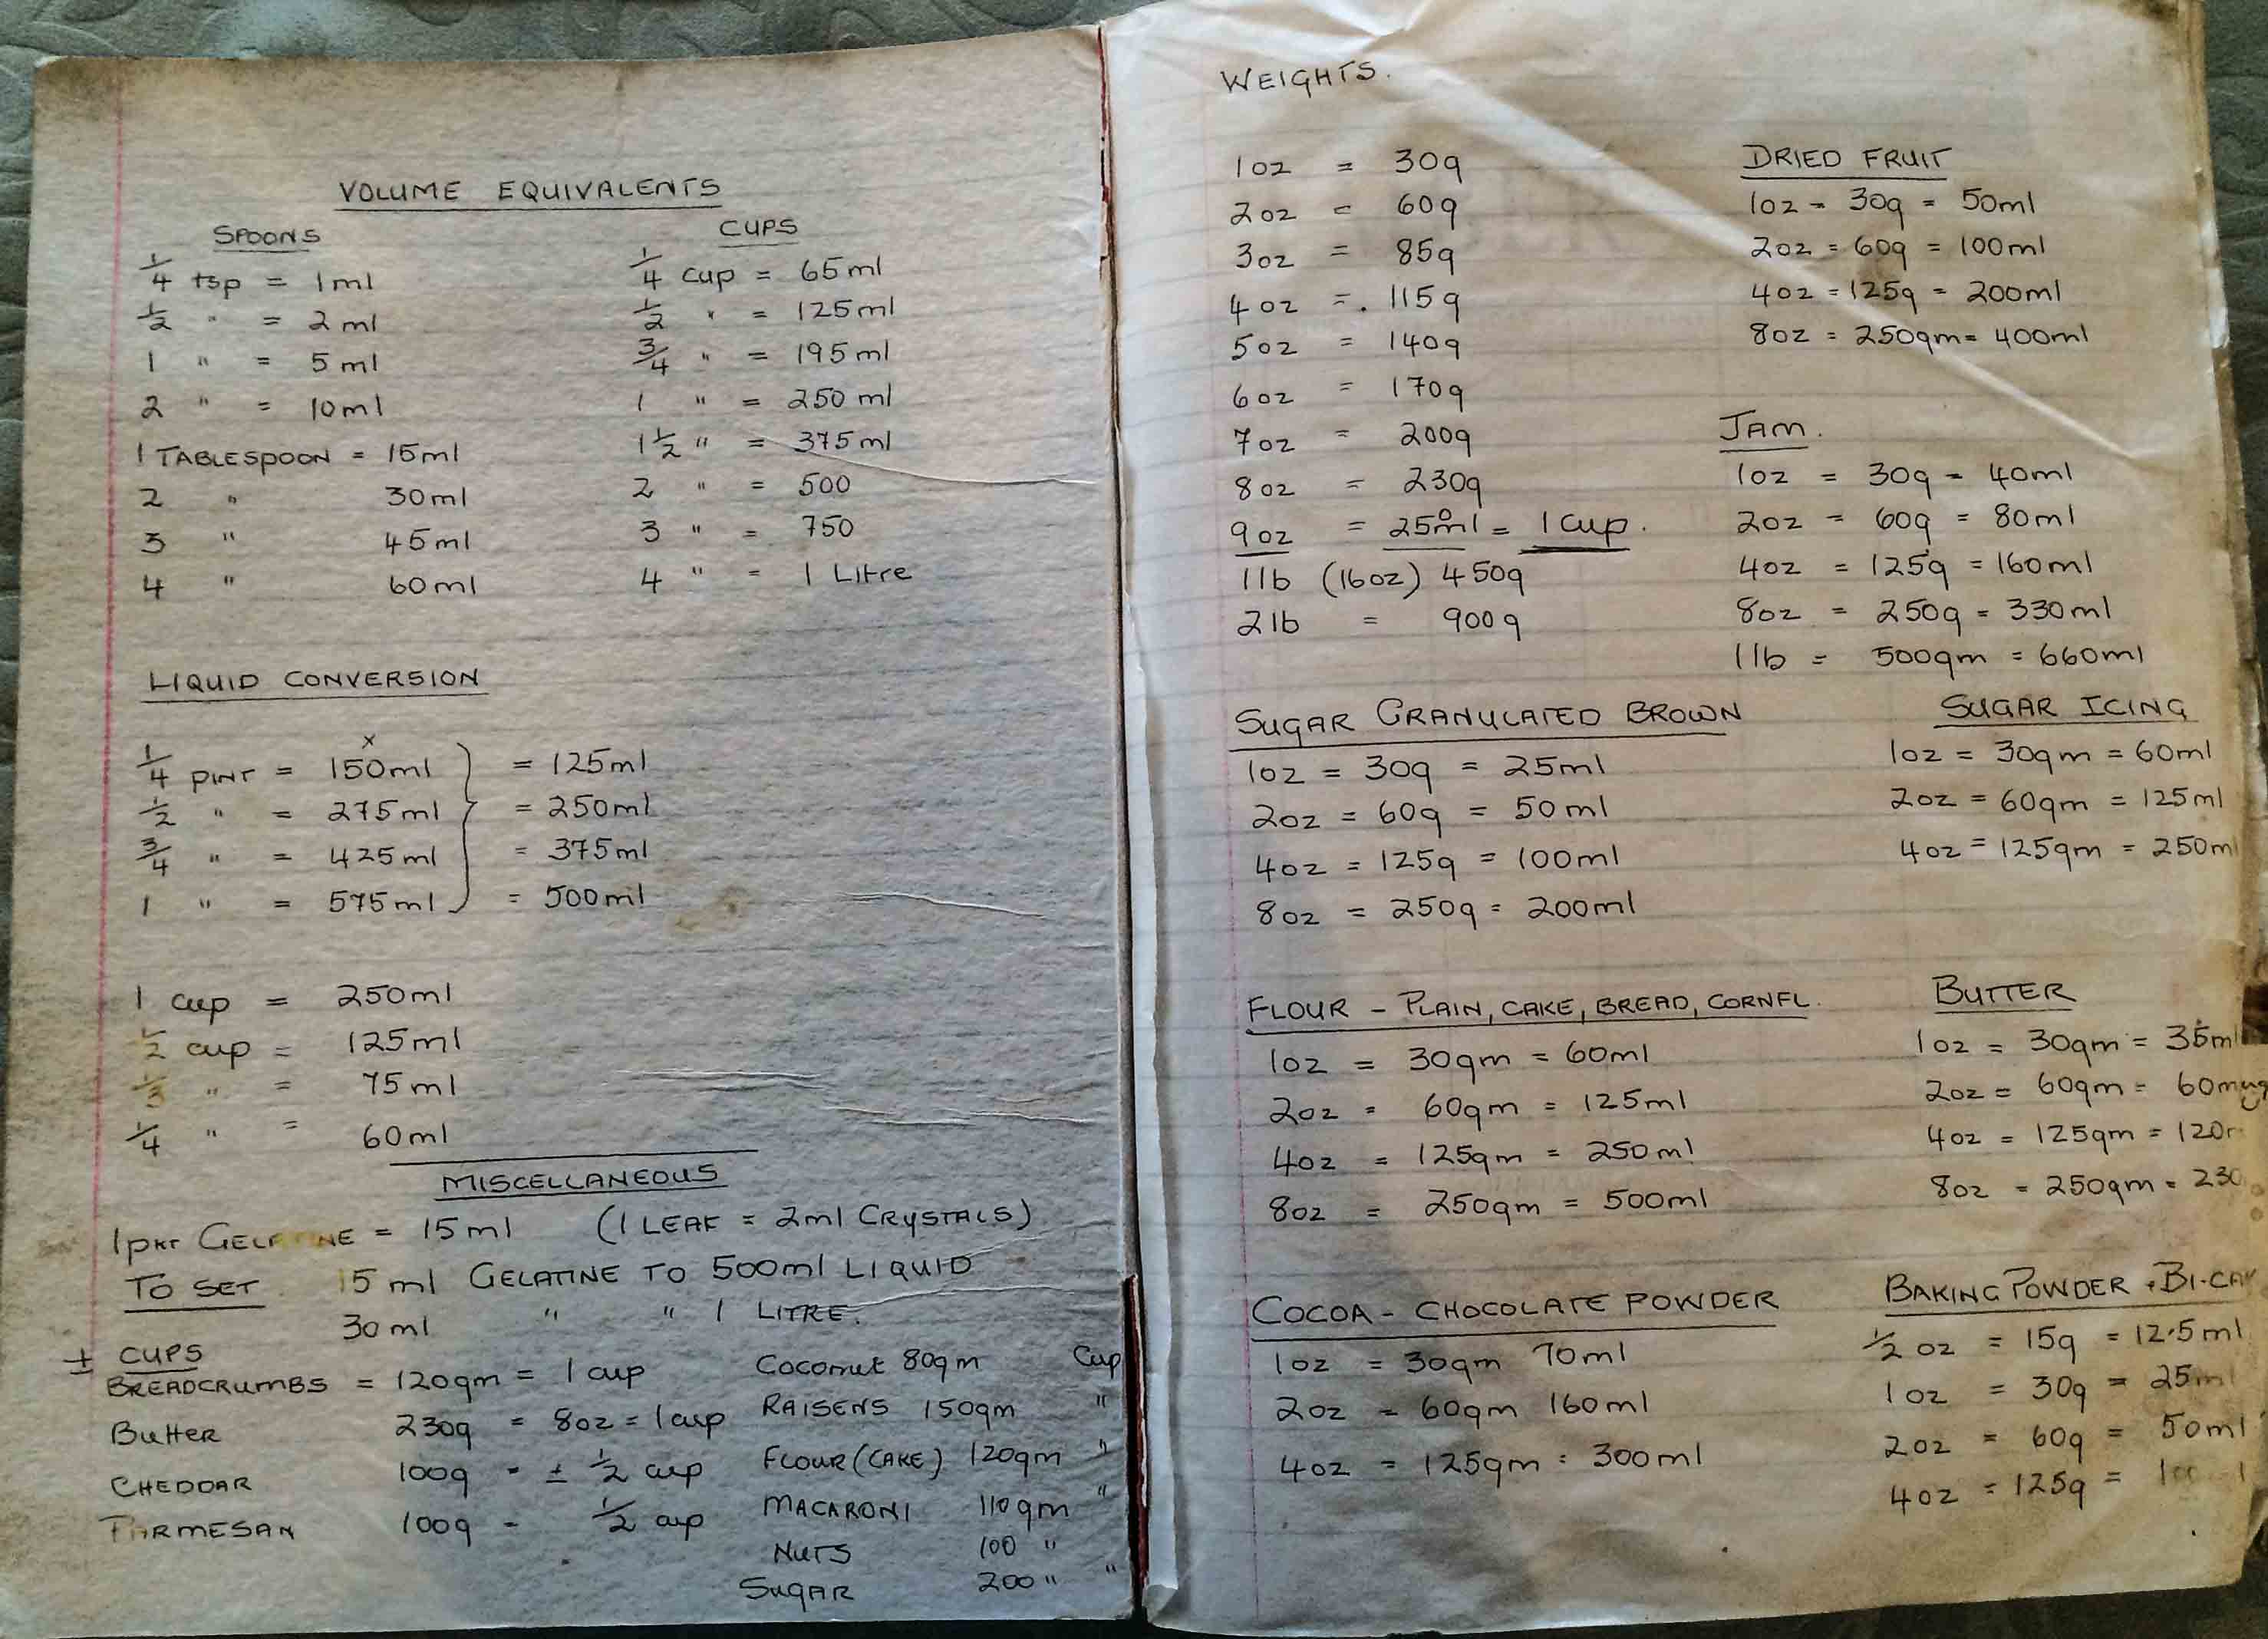 VOLUME EQUIVALENTS
SPOONS
1/4 tsp = 1ml
1/2 " = 2ml
1 " = 5ml
2 " = 10ml
1 TABLESPOON = 15ml
2 " 30ml
3 " 45ml
4 " 60ml
CUPS
1/4 cup = 65ml
1/2 " = 125ml
3/4 " = 195ml
1 " = 250ml
1 1/2 " = 375ml
2 " = 500
3 " = 750
4 " = 1 Litre
LIQUID CONVERSION
x
1/4 PINT = 150ml } = 125ml
1/2 " = 275ml = 250ml
3/4 " = 425ml = 375ml
1 " = 575ml = 500ml
1 cup = 250ml
1/2 cup = 125ml
1/3 " = 75ml
1/4 " = 60ml
MISCELLANEOUS
1pkt GELATINE = 15ml (1 LEAF = 2ml CRYSTALS)
TO SET 15ml GELATINE TO 500ml LIQUID
30ml " " 1 LITRE.
± CUPS
BREADCRUMBS = 120gm = 1 cup
Butter 230g = 8oz = 1 cup
CHEDDAR 100g - ± 1/2 cup
PARMESAN 100g - 1/2 cup
Coconut 80gm Cup
RAISENS 150gm "
FLOUR (CAKE) 120gm "
MACARONI 110gm "
NUTS 100 "
SUGAR 200 " "
WEIGHTS.
1oz = 30g
2oz = 60g
3oz = 85g
4oz = 115g
5oz = 140g
6oz = 170g
7oz = 200g
8oz = 230g
9oz = 250ml = 1 cup.
1lb (16oz) 450g
2lb = 900g
DRIED FRUIT
1oz = 30g = 50ml
2oz = 60g = 100ml
4oz = 125g = 200ml
8oz = 250gm = 400ml
JAM.
1oz = 30g = 40ml
2oz = 60g = 80ml
4oz = 125g = 160ml
8oz = 250g = 330ml
1lb = 500gm = 660ml
SUGAR GRANULATED BROWN
1oz = 30g = 25ml
2oz = 60g = 50ml
4oz = 125g = 100ml
8oz = 250g = 200ml
SUGAR ICING
1oz = 30gm = 60ml
2oz = 60gm = 125ml
4oz = 125gm = 250m
FLOUR - PLAIN, CAKE, BREAD, CORNFL.
1oz = 30gm = 60ml
2oz = 60gm = 125ml
4oz = 125gm = 250ml
8oz = 250gm = 500ml
BUTTER
1oz = 30gm = 35ml
2oz = 60gm = 60m
4oz = 125gm = 120
8oz = 250gm = 230
COCOA - CHOCOLATE POWDER
1oz = 30gm 70ml
2oz = 60gm 160ml
4oz = 125gm = 300ml
BAKING POWDER + BI-CAR
1/2 oz = 15g = 12.5ml
1oz = 30g = 25ml
2oz = 60g = 50ml
4oz = 125g =